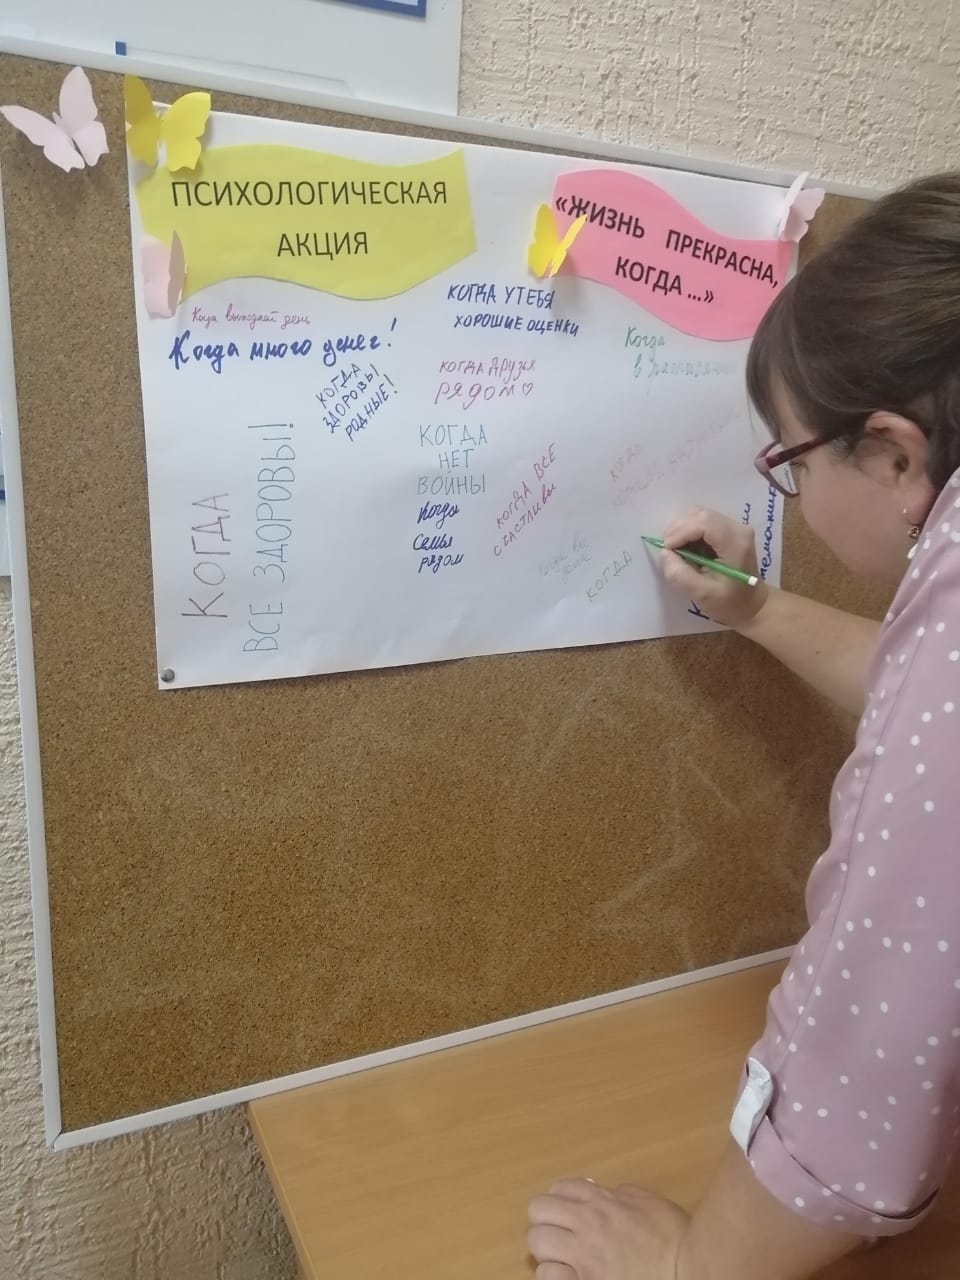 ПСИХОЛОГИЧЕСКАЯ
АКЦИЯ
«ЖИЗНЬ ПРЕКРАСНА,
КОГДА...»
Когда выходной день
Когда много денег!
КОГДА
ЗДОРОВЫ
РОДНЫЕ!
КОГДА У ТЕБЯ
ХОРОШИЕ ОЦЕНКИ
КОГДА ДРУЗЬЯ
РЯДОМ♡
Когда
в
КОГДА
НЕТ
ВОЙНЫ
Когда
Семья
рядом
КОГДА ВСЕ
СЧАСТЛИВЫ
КОГДА
ВСЕ ЗДОРОВЫ!
КОГДА
Когда все
дома
КОГДА